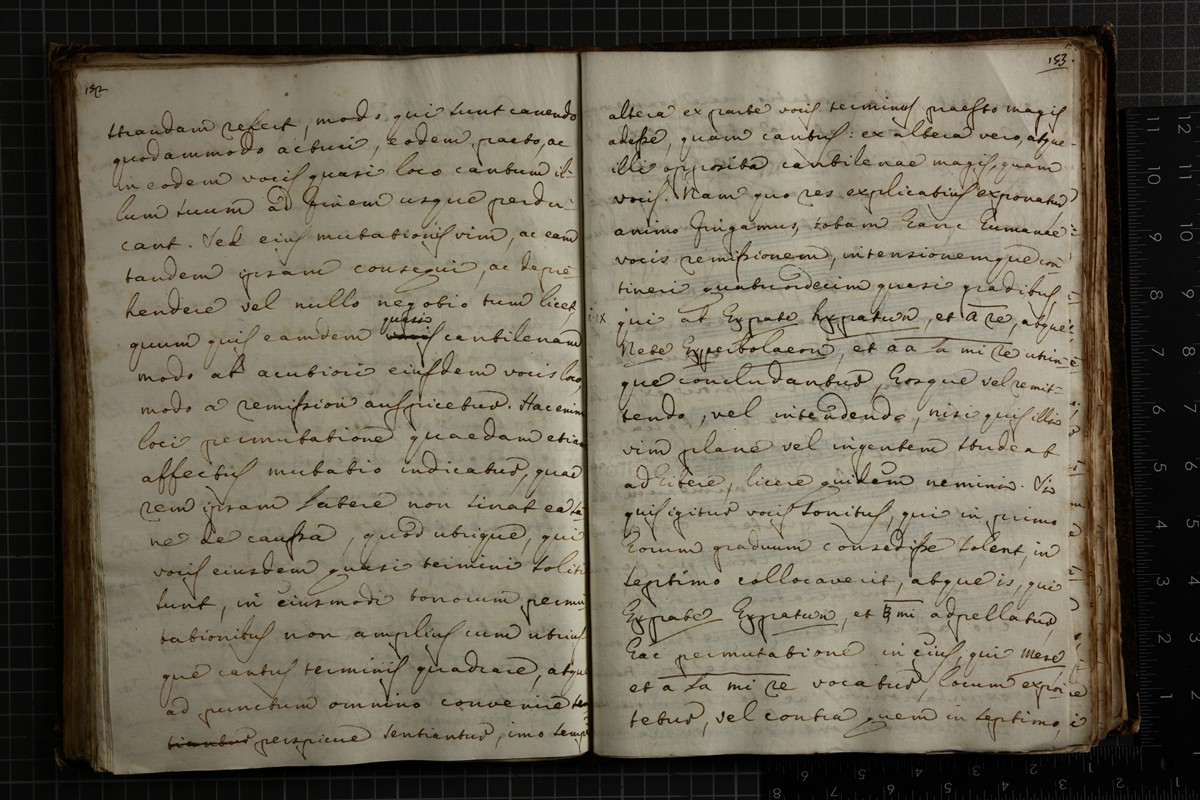 152
strandam refert, modo qui sunt canendo
quodammodo acturi, eodem pacto, ac
in eodem vocis quasi loco cantum il-
lum suum ad finem usque perdu-
cant. Sed eius mutationis vim, ac eam
tandem ipsam consequi, ac depre
hendere vel nullo negotio tum licet
quasi
quum quis eamdem cantilenam
modo ab acutiori eiusdem vocis loco
modo a remissiori auspicetur. Hac enim
loci permutatione quaedam etiam
affectus mutatio indicatur, quae
rem ipsam latere non sinat ea sa
ne de caussa, quod ubique, qui
vocis eiusdem quasi termini soliti
sunt, in eiusmodi tonorum permu
tationibus non amplius cum utrius
que cantus terminis quadrare, atque
ad punctum omnino convenire
perspicue sentiantur, imo semp
153.
altera ex parte vocis terminus praesto magis
adesse, quam cantus: ex altera vero, atque
illi opposita cantilenae magis, quam
vocis. Nam quo res explicatius exponatur
animo fingamus, totam hanc humanae
vocis remissionem, intensionemque con
tineri quatuordecim quasi gradibus
qui ab Hypate hypaton, et A re, atque
Nete Hyperbolaeon, et aa la mi re utrin
que concludantur, hosque vel remit-
tendo, vel intendendo, nisi quis illis
vim plane vel ingentem studeat
adhibere, licere quidem nemini. Si
quis igitur vocis sonitus, qui in primo
horum graduum consedisse solent, in
septimo collocaverit, atque is, qui
Hypate Hypaton, et ♮ mi adpellatur,
hac permutatione in eius, qui mese
et a la mi re vocatur, locum
tetur, vel contra quem in septimo,